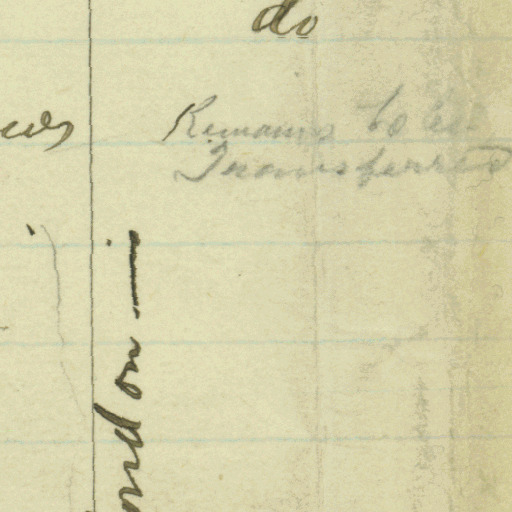 do
Remains to be
Transferred
on —